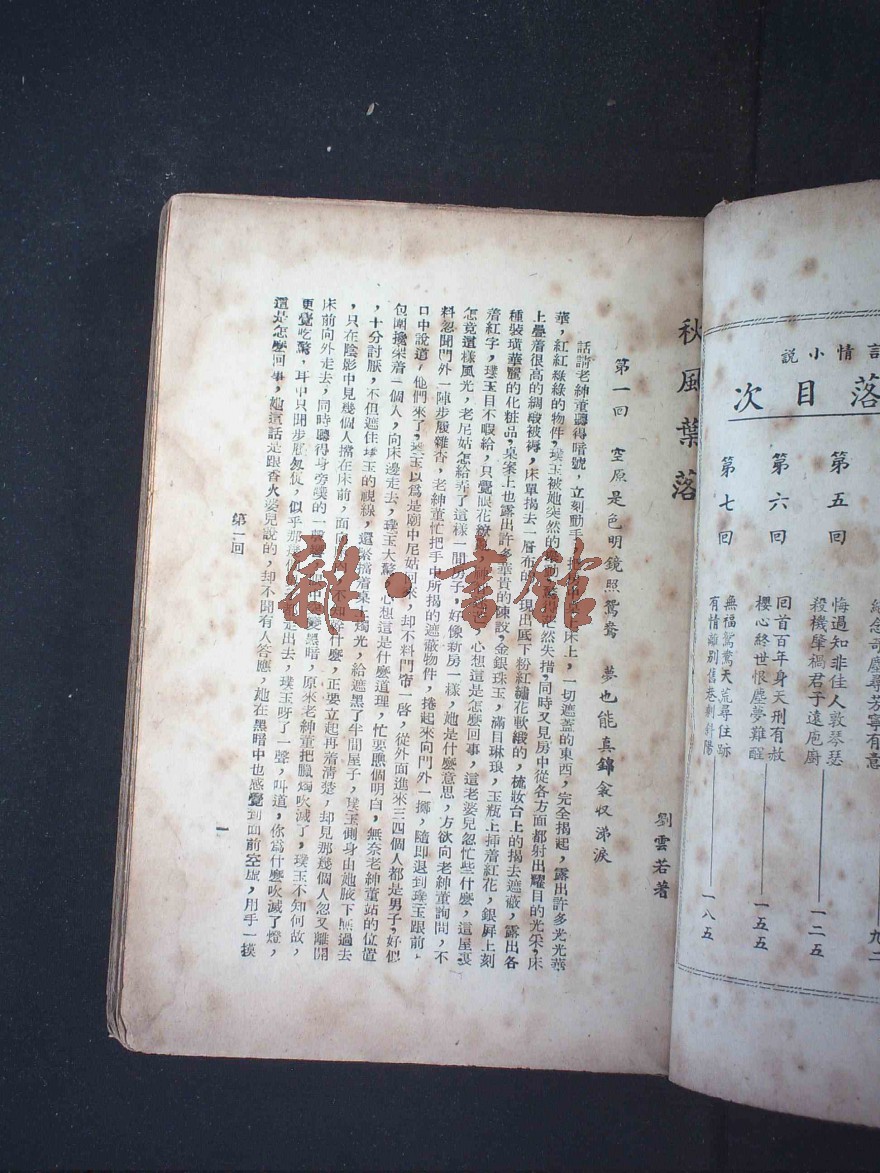 言情小說
落目次
紀念
第五回
悔過知非佳人敦琴瑟
殺機肇禍君子遠庖廚
一二五
第六回
回首百年身天刑有赦
櫻心終世恨塵夢難醒
一五五
第七回
無福鴛鴦天荒尋住跡
有情離別舊巷剩斜陽
一八五
秋風葉落
劉雲若著
第一回 空原是色明鏡照鴛鴦 夢也能真錦衾収涕淚
話說老紳董聽得暗號,立刻動手,把床上,一切遮蓋的東西,完全揭起,露出許多光光華
華,紅紅綠綠的物件,璞玉被她突然的然失措,同時又見房中從各方面都射出耀目的光采,床
上疊着很高的綢緞被褥,床單揭去一層布的,現出底下粉紅繡花軟緞的,梳妝台上的揭去遮蔽,露出各
種裝璜華麗的化粧品,桌案上也露出許多華貴的陳設,金銀珠玉,滿目琳琅,玉瓶上揷着紅花,銀屏上刻
着紅字,璞玉目不暇給,只覺眼花心想這是怎麽回事,這老婆兒忽忙些什麽,這屋裏
怎竟這樣風光,老尼姑怎給弄了這樣一間房子,好像新房一樣,她是什麽意思,方欲向老紳董詢問,不
料忽聞門外一陣步履雜沓,老紳董忙把手中所揭的遮蔽物件,捲起來向門外一擲,隨即退到璞玉跟前,
口中說道,他們來了,璞玉以爲是廟中尼姑回來,却不料門帘一啓,從外面進來三四個人都是男子,好似
包圍攙架着一個人,向床邊走去,璞玉大驚,心想這是什麽道理,忙要瞧個明白,無奈老紳董站的位置
,十分討厭,不但遮住璞玉的視線,還緊擋着桌上燭光,給遮黑了半間屋子,璞玉側身由她腋下瞧過去
,只在陰影中見幾個人擋在床前,面向不知等什麽,正要立起再看淸楚,却見那幾個人忽又離開
床前向外走去,同時聽得身旁噗的一聲,變黑暗,原來老紳董把臘燭吹滅了,璞玉不知何故,
更覺吃驚,耳中只聞步履忽忙,似乎那幾走出去,璞玉呀了一聲,叫道,你爲什麽吹滅了燈,
這是怎麽回事,她這話是跟香火婆兒說的,却不聞有人答應,她在黑暗中也感覺到面前空虛,用手一摸
第一回
一
雜·書館